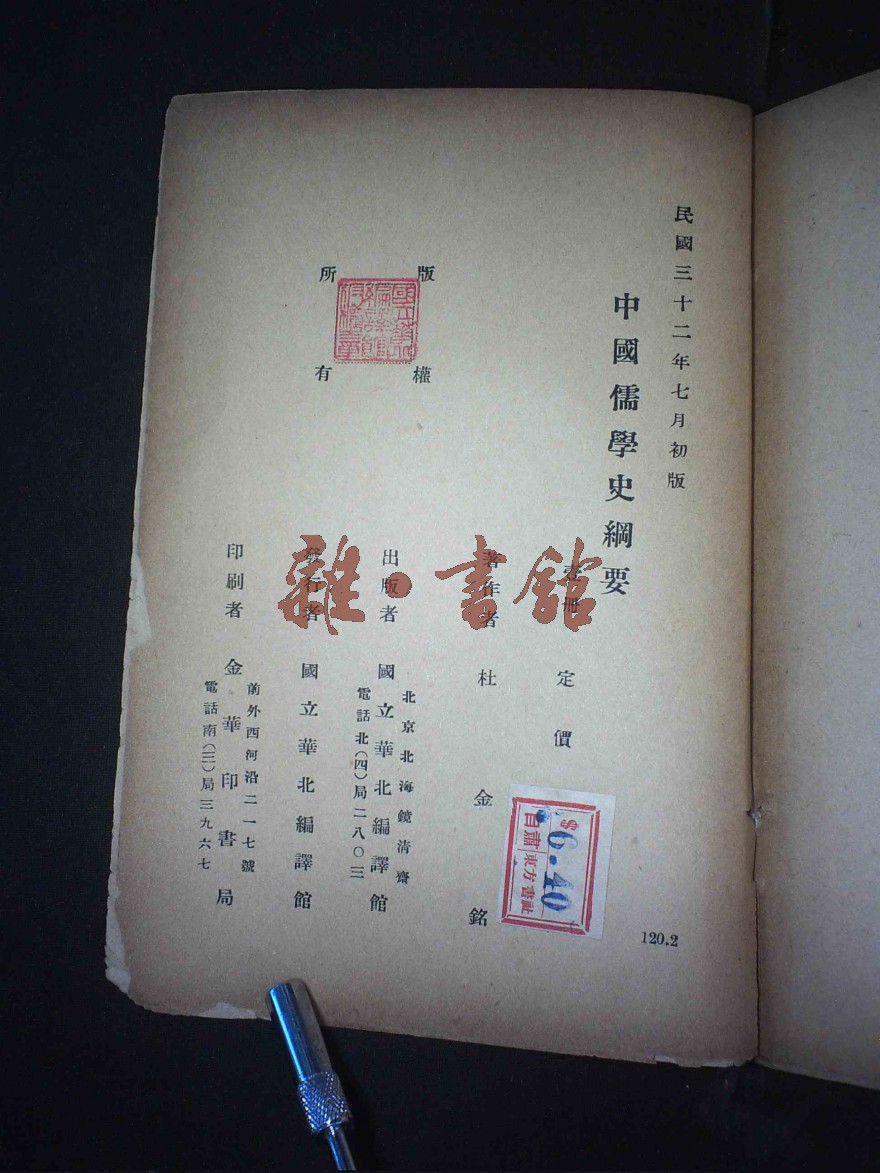 民國三十二年七月初版
中國儒學史綱要
壹冊 定價
$6.40
自肅 東方書社
著作者 杜金銘
北京北海鏡清齋
出版者 國立華北編譯館
電話北(四)局二八〇三
發行者 國立華北編譯館
前外西河沿二一七號
印刷者 金華印書局
電話南(三)局三九六七
版權所有
國立華北編譯館版權章
雜·書館
120.2